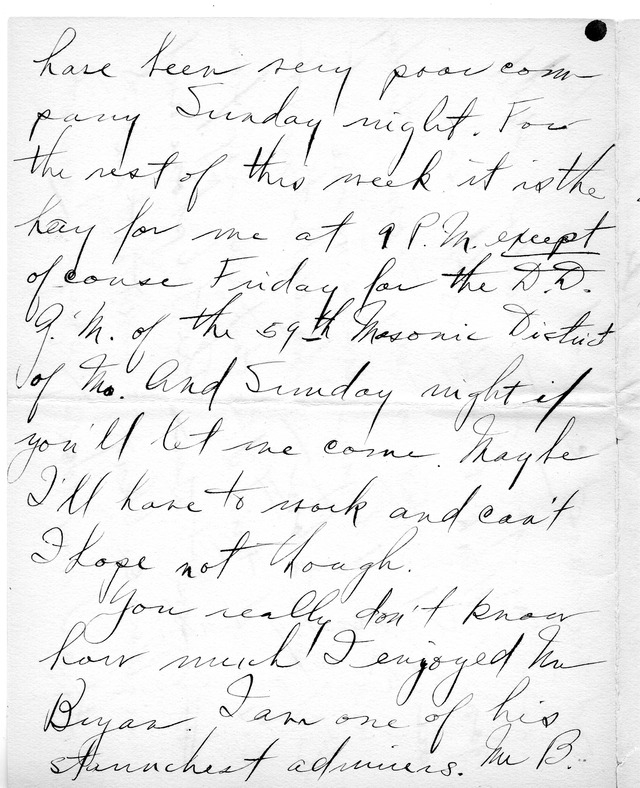 have been very poor com
pany Sunday night. For
the rest of this week it is the
hay for me at 9 P.M. except
of couse Friday for the D.D.
G.M. of the 59th Masonic District
of Mo. And Sunday night if
you'll let me come. Maybe
I'll have to work and can't
I hope not though.
You really don't know
how much I enjoyed Mr
Bryan. I am one of his
staunchest admirers. Mr B.